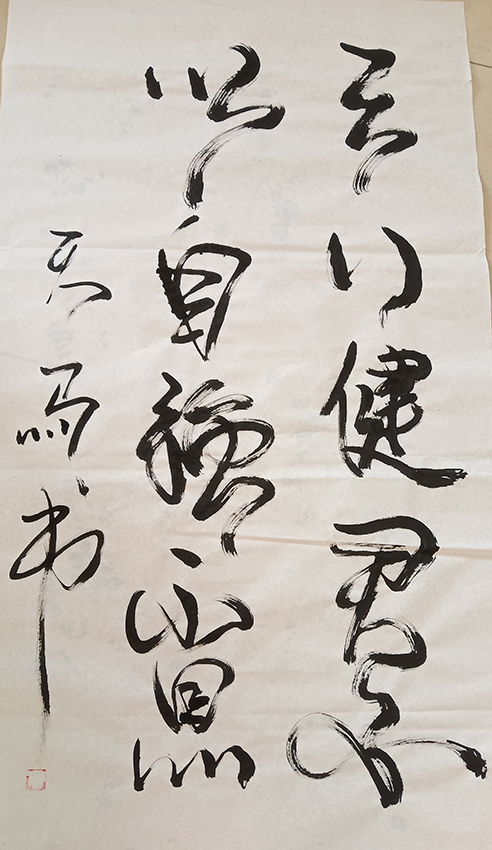 天行健君子
以自强不息
天马书